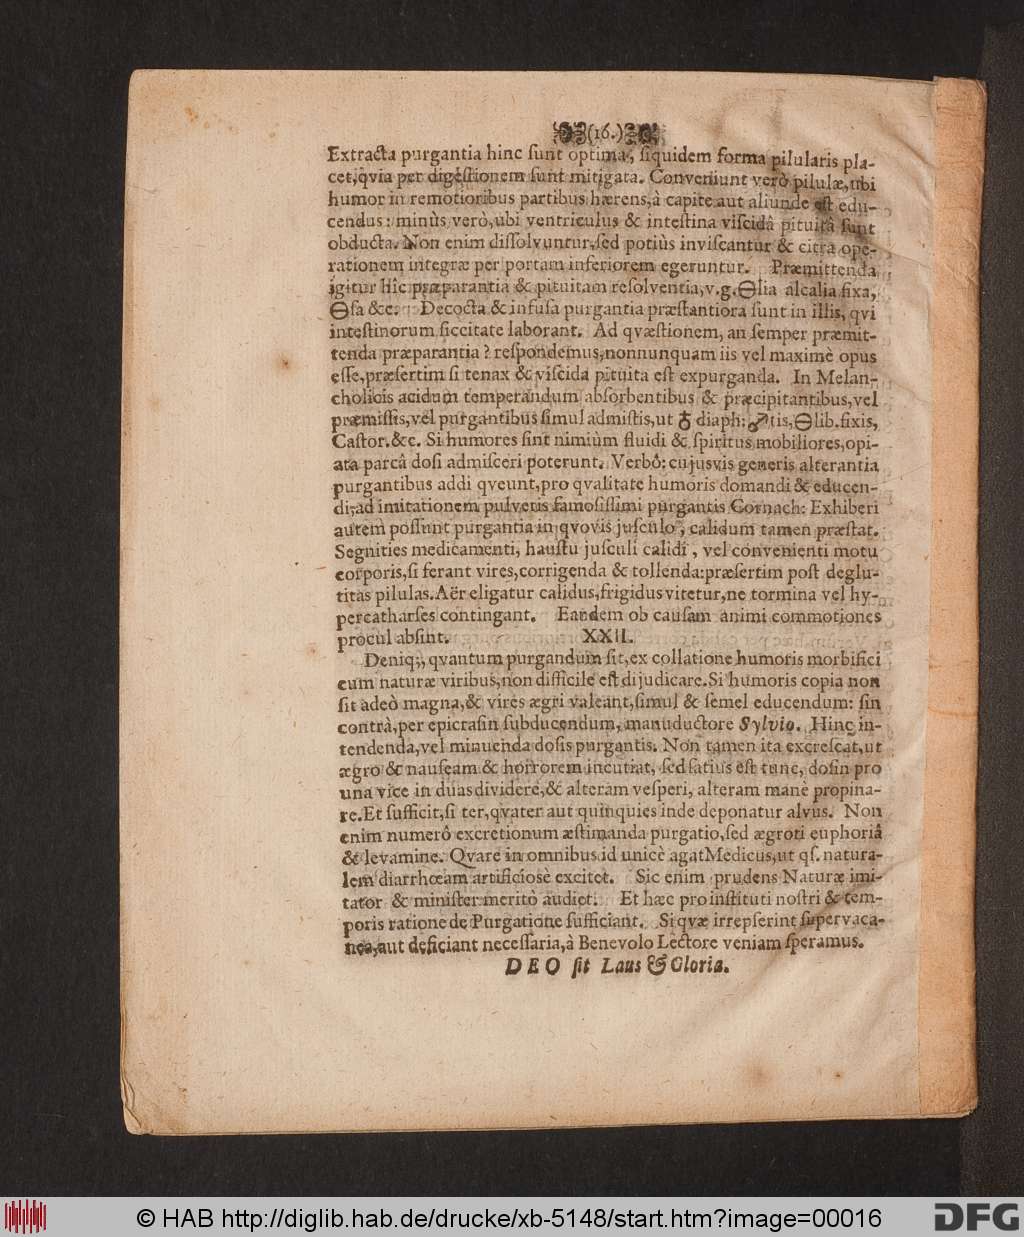 (16.)
Extracta purgantia hinc ſunt optima, ſiquidem forma pilularis pla-
cet, qvia per digeſtionem ſunt mitigata. Conveniunt verò pilulæ, ubi
humor in remotioribus partibus hærens, à capite aut aliunde eſt edu-
cendus: minùs verò, ubi ventriculus & inteſtina viſcidâ pituitâ ſunt
obducta. Non enim diſſolvuntur, ſed potiùs inviſcantur & citra ope-
rationem integræ per portam inferiorem egeruntur. Præmittenda
igitur hîc præparantia & pituitam reſolventia, v.g. 🜔lia alcalia fixa,
🜔ſa &c. Decocta & infuſa purgantia præſtantiora ſunt in illis, qvi
inteſtinorum ſiccitate laborant. Ad qvæſtionem, an ſemper præmit-
tenda præparantia? reſpondemus, nonnunquam iis vel maximè opus
eſſe, præſertim ſi tenax & viſcida pituita eſt expurganda. In Melan-
cholicis acidum temperandum abſorbentibus & præcipitantibus, vel
præmiſſis, vel purgantibus ſimul admiſtis, ut ♁ diaph: ♂tis, 🜔lib. fixis,
Caſtor. &c. Si humores ſint nimiùm fluidi & ſpiritus mobiliores, opi-
ata parcâ doſi admiſceri poterunt. Verbô: cujusvis generis alterantia
purgantibus addi qveunt, pro qvalitate humoris domandi & educen-
di, ad imitationem pulveris famoſiſſimi purgantis Cornach: Exhiberi
autem poſſunt purgantia in qvovis juſculo, calidum tamen præſtat.
Segnities medicamenti, hauſtu juſculi calidi, vel convenienti motu
corporis, ſi ferant vires, corrigenda & tollenda: præſertim poſt deglu-
titas pilulas. Aër eligatur calidus, frigidus vitetur, ne tormina vel hy-
percatharſes contingant. Eandem ob cauſam animi commotiones
procul abſint. XXII.
Deniq;, qvantum purgandum ſit, ex collatione humoris morbifici
cum naturæ viribus, non difficile eſt dijudicare. Si humoris copia non
ſit adeò magna, & vires ægri valeant, ſimul & ſemel educendum: ſin
contrà, per epicraſin ſubducendum, manuductore Sylvio. Hinc in-
tendenda, vel minuenda doſis purgantis. Non tamen ita excreſcat, ut
ægro & nauſeam & horrorem incutiat, ſed ſatius eſt tunc, doſin pro
una vice in duas dividere, & alteram veſperi, alteram manè propina-
re. Et ſufficit, ſi ter, qvater aut quinquies inde deponatur alvus. Non
enim numerô excretionum æſtimanda purgatio, ſed ægroti euphoriâ
& levamine. Qvare in omnibus id unicè agat Medicus, ut qſ. natura-
lem diarrhœam artificioſè excitet. Sic enim prudens Naturæ imi-
tator & miniſter meritò audiet. Et hæc pro inſtituti noſtri & tem-
poris ratione de Purgatione ſufficiant. Si qvæ irrepſerint ſupervaca-
nea, aut deficiant neceſſaria, à Benevolo Lectore veniam ſperamus.
DEO ſit Laus & Gloria.
© HAB http://diglib.hab.de/drucke/xb-5148/start.htm?image=00016
DFG